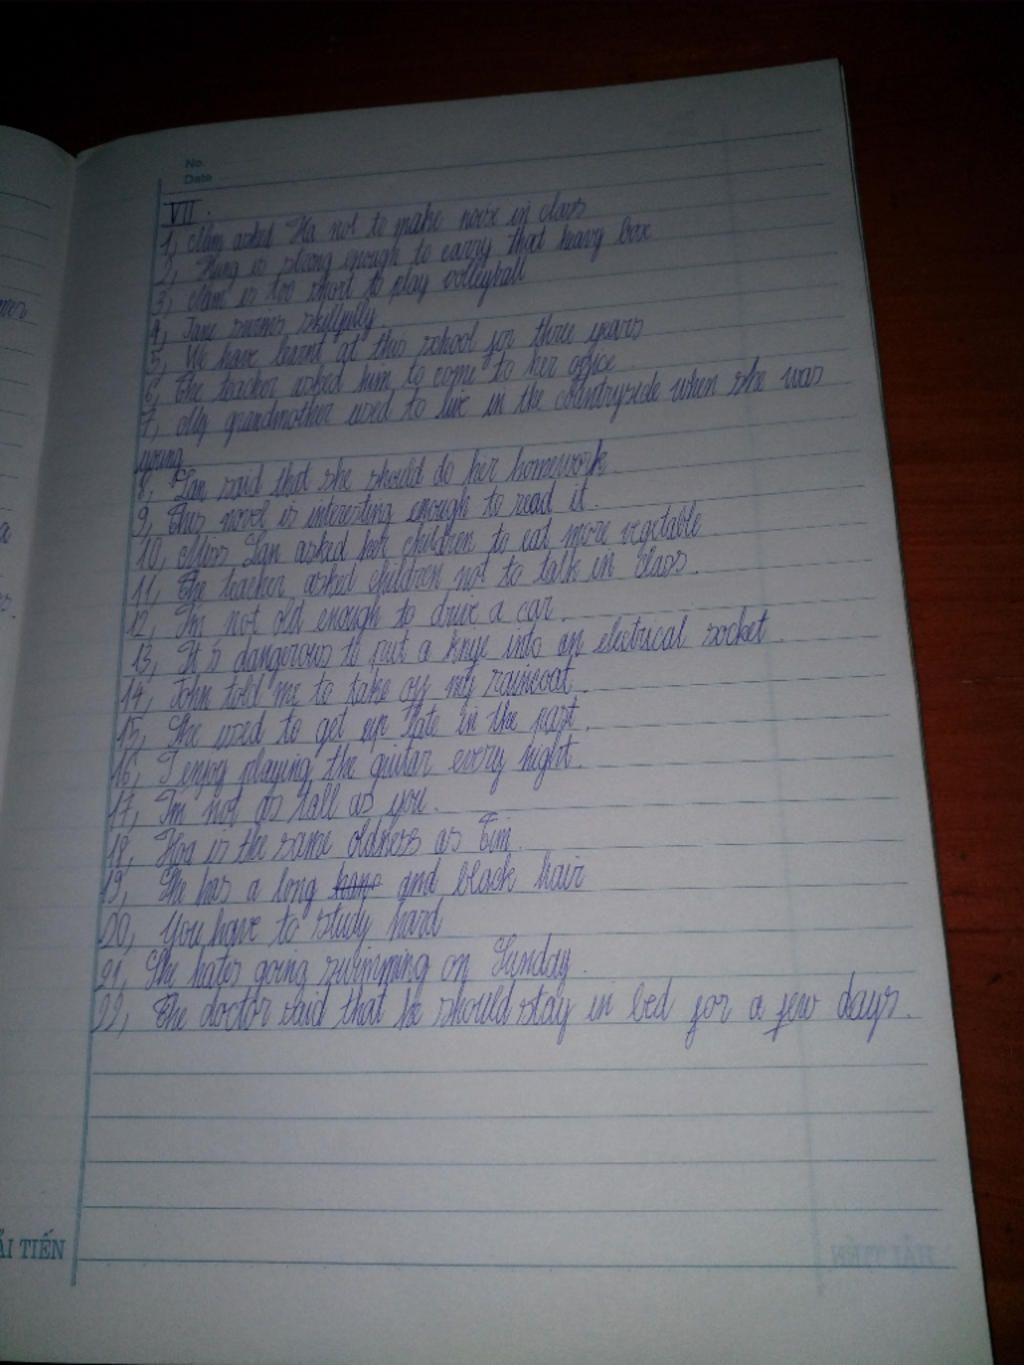 No.
Date
VII.
1, Nam asked Ha not to make noise in class
2, Hung is strong enough to carry that heavy box
3, Nam is too short to play volleyball
4, Jane swims skilfully
5, We have learnt at this school for three years
6, The teacher asked him to come to her office
7, My grandmother used to live in the countryside when she was
young
8, Lan said that she should do her homework
9, This novel is interesting enough to read it.
10, Miss Lan asked her children to eat more vegetable
11, The teacher asked children not to talk in class.
12, I'm not old enough to drive a car.
13, It's dangerous to put a knife into an electrical socket.
14, John told me to take off my raincoat.
15, She used to get up late in the past.
16, I enjoy playing the guitar every night.
17, I'm not as tall as you.
18, Hoa is the same oldness as Tim.
19, She has a long and black hair
20, You have to study hard
21, She hates going swimming on Sunday.
22, The doctor said that he should stay in bed for a few days.
ẢI TIẾN
HẢI TIẾN